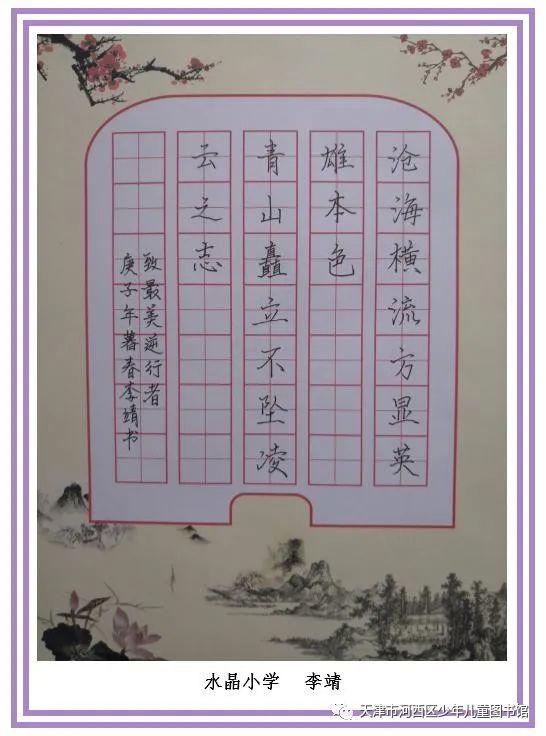 沧海横流方显英
雄本色
青山矗立不坠凌
云之志
致最美逆行者
庚子年暮春李靖书
水晶小学 李靖
天津市河西区少年儿童图书馆